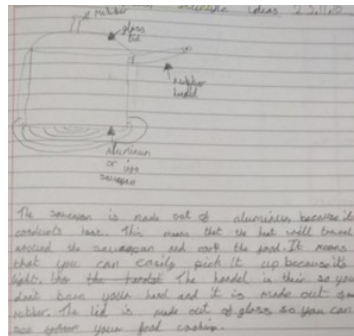 rubber
ideas 23.11.10
glass
lid
rubber
aluminium
or iron
saucepan
The saucepan is made out of aluminium because it
conducts heat. This means that the heat will travel
around the saucepan and cook the food. It means
that you can easily pick it up because its
light. The handel is their so you
dont burn your hand and it is made out of
rubber. The lid is made out of glass so you can
see your food cooking.